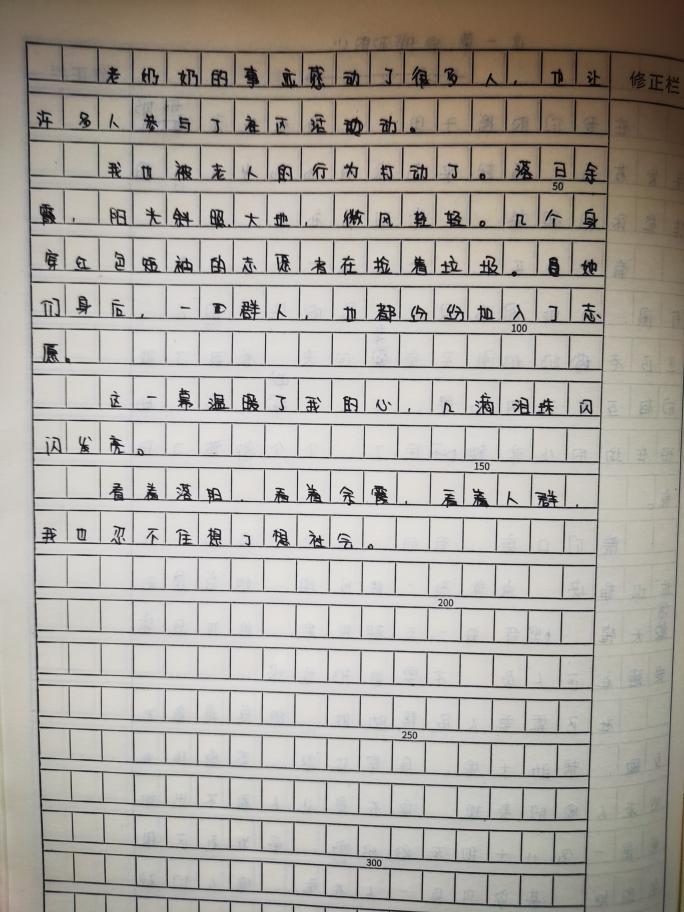 修正栏
老奶奶的事迹感动了很多人，也让
许多人参与了社区活动动。
我也被老人的行为打动了。落日余
50
霞，阳光斜照大地，微风轻轻。几个身
穿红色短袖的志愿者在捡着垃圾。她
们身后，一群人，也都份份加入了志
100
愿。
这一幕温暖了我的心，几滴泪珠闪
闪发亮。
150
看着落阳，看着余霞，看着人群，
我也忍不住想了想社会。
200
250
300